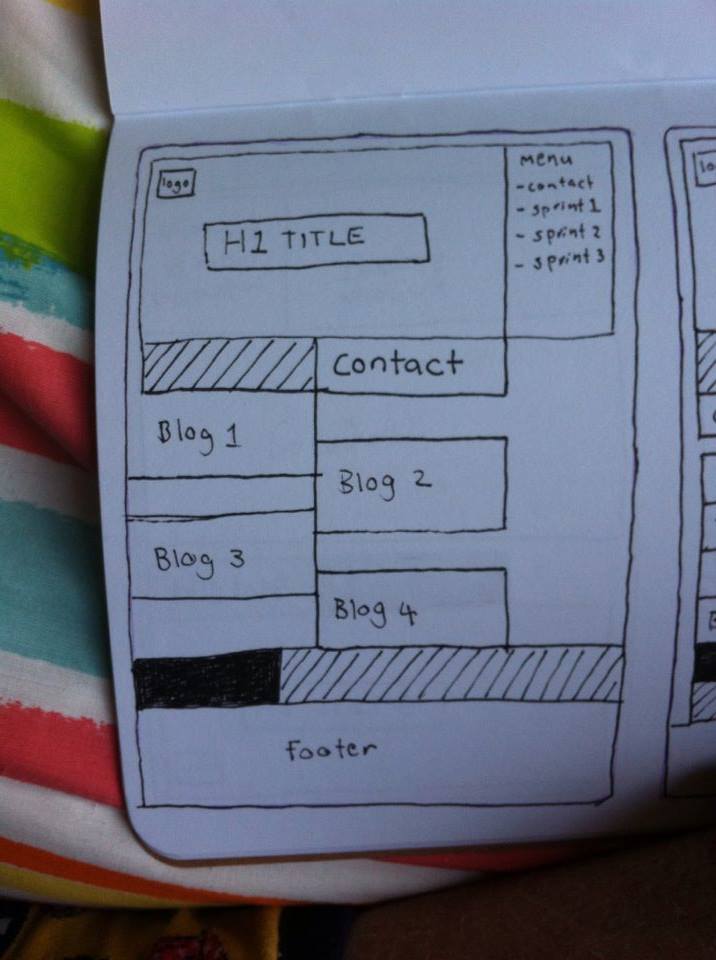 logo
H1 TITLE
menu
-contact
- sprint 1
- sprint 2
- sprint 3
Contact
Blog 1
Blog 2
Blog 3
Blog 4
footer